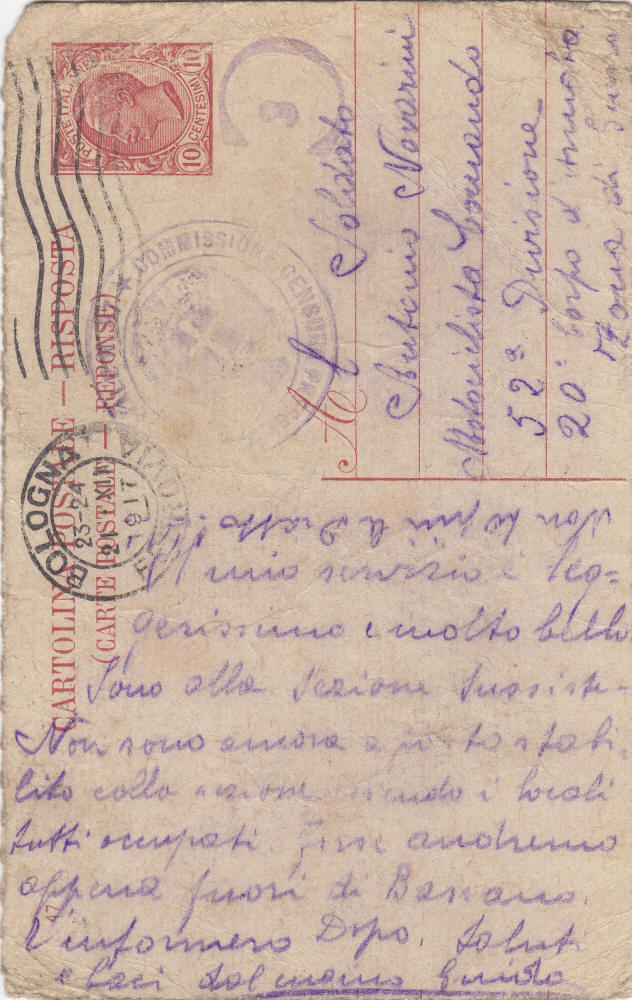 POSTE ITALIANE
10 CENTESIMI 10
CARTOLINA POSTALE — RISPOSTA
(CARTE POSTALE — RÉPONSE)
COMMISSIONE CENSURA
8
BOLOGNA FERROVIA
23-24
21 XII
1917
Al Soldato
Antonio Novarini
Motociclista Comando
52a Divisione
20° Corpo d'Armata
Zona di Guerra
Non
Il mio servizio è leg-
gerissimo e molto bello
Sono alla Sezione Sussiste-
Non sono ancora a posto stabi-
lito colla sezione essendo i locali
tutti occupati. Forse andremo
appena fuori di Bassano.
T'informerò Dopo. Saluti
e baci dal memo Guido
47